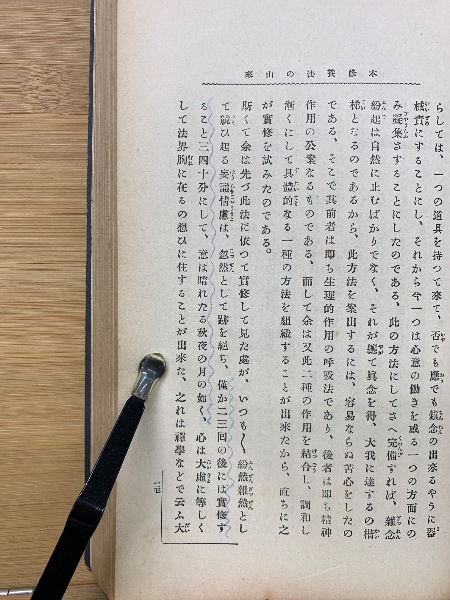 本修養法の由來
らしては、一つの道具を持つて來て、否でも應でも雜念の出來るやうに器
械責にすることにし、それから今一つは心意の働きを或る一つの方面にの
み凝集さすることにしたのである、此の方法にしてさへ完備すれば、雜念
紛起は自然に止むばかりでなく、それが軈て眞念を得、大我に達するの楷
梯となるのであるから、此方法を案出するには、容易ならぬ苦心をしたの
である、そこで其前者は卽ち生理的作用の呼吸法であり、後者は卽ち精神
作用の公案なるものである、而して余は又此二種の作用を結合し、調和し
漸くにして具體的なる一種の方法を組織することが出來たから、直ちに之
が實修を試みたのである。
斯くて余は先づ此法に依つて實修して見た處が、いつも〱紛然雜然とし
て競ひ起る妄識情慮は、忽然として跡を絕ち、僅か二三回の後には實修す
ること三四十分にして、意は晴れたる秋夜の月の如く、心は大虛に等しく
して法界胸に在るの想ひに住することが出來た、之れは禪學などで云ふ大